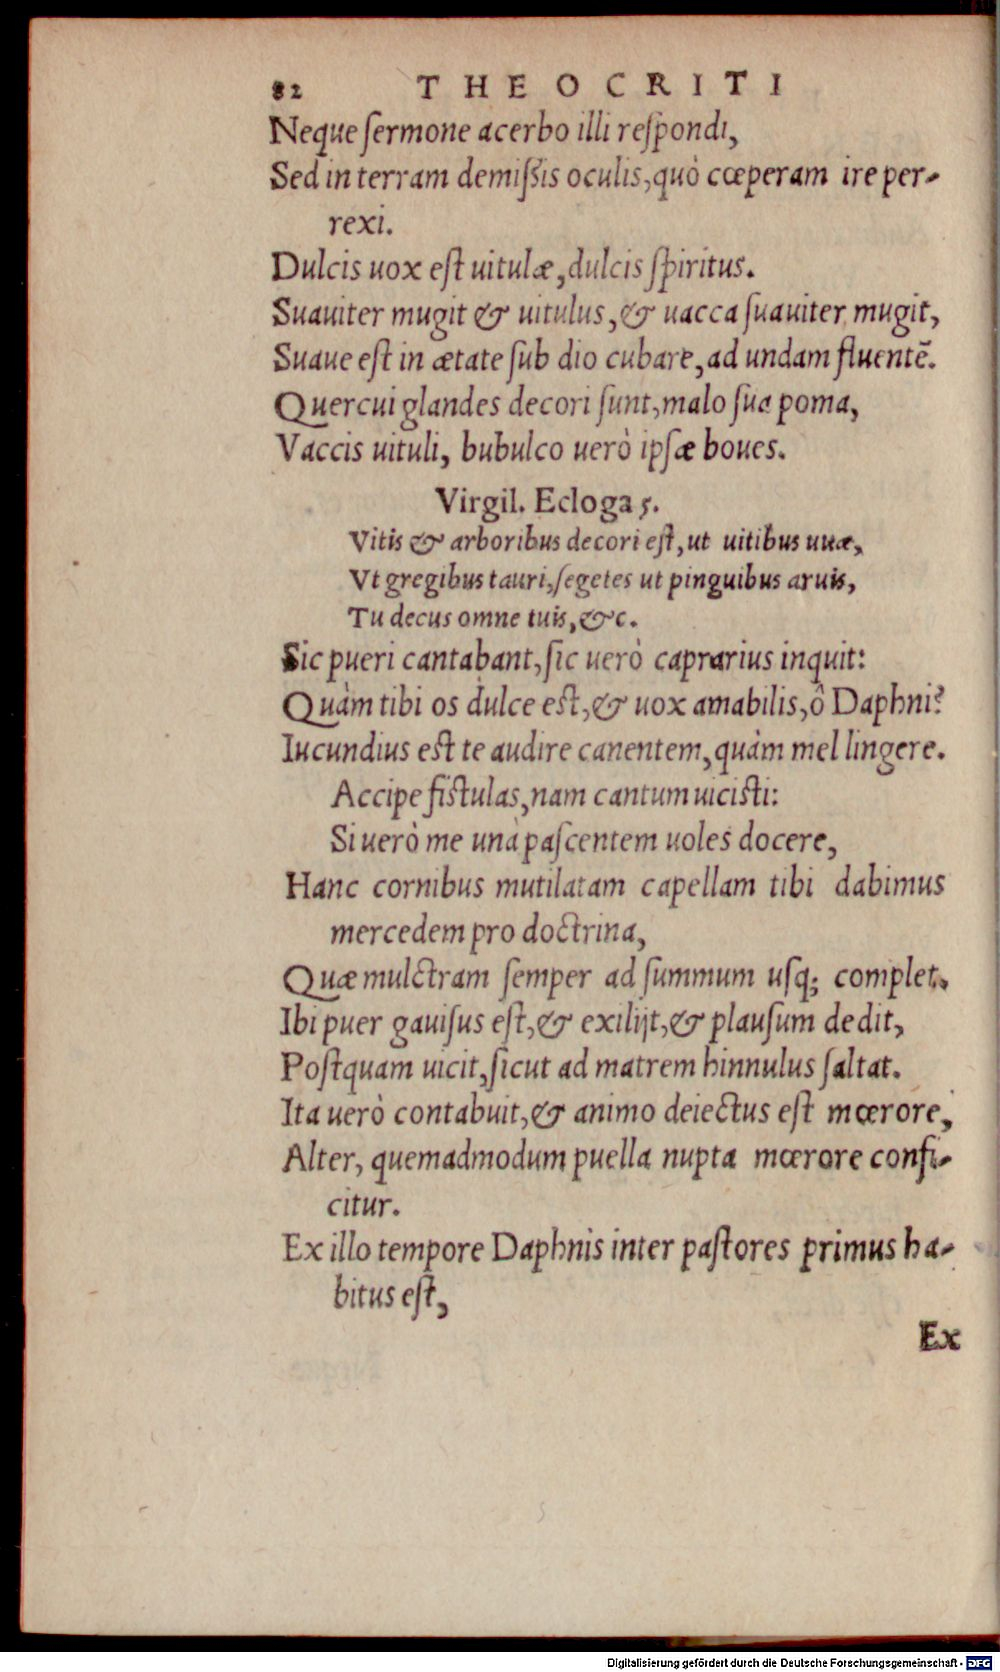 82 THEOCRITI
Neque ſermone acerbo illi reſpondi,
Sed in terram demiſſis oculis, quò cœperam ire per-
rexi.
Dulcis uox eſt uitulæ, dulcis ſpiritus.
Suauiter mugit & uitulus, & uacca ſuauiter mugit,
Suaue eſt in ætate ſub dio cubare, ad undam fluentē.
Quercui glandes decori ſunt, malo ſua poma,
Vaccis uituli, bubulco uerò ipſæ boues.
Virgil. Ecloga 5.
Vitis & arboribus decori eſt, ut uitibus uuæ,
Vt gregibus tauri, ſegetes ut pinguibus aruis,
Tu decus omne tuis, &c.
Sic pueri cantabant, ſic uerò caprarius inquit:
Quàm tibi os dulce est, & uox amabilis, ô Daphni?
Iucundius est te audire canentem, quàm mel lingere.
Accipe fistulas, nam cantum uicisti:
Si uerò me unà paſcentem uoles docere,
Hanc cornibus mutilatam capellam tibi dabimus
mercedem pro doctrina,
Quæ mulctram ſemper ad ſummum uſq; complet.
Ibi puer gauiſus eſt, & exilijt, & plauſum dedit,
Poſtquam uicit, ſicut ad matrem hinnulus ſaltat.
Ita uerò contabuit, & animo deiectus eſt mœrore,
Alter, quemadmodum puella nupta mœrore confi-
citur.
Ex illo tempore Daphnis inter paſtores primus ha-
bitus eſt,
Ex
Digitalisierung gefördert durch die Deutsche Forschungsgemeinschaft - DFG